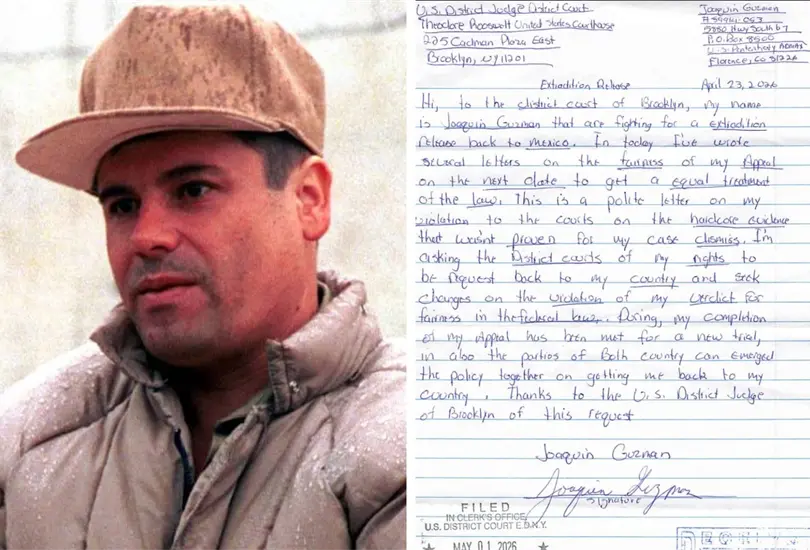 U.S. District Judge District Court
Theodore Roosevelt United States Courthouse
225 Cadman Plaza East
Brooklyn, NY 11201
Joaquin Guzman
5880 Hwy South 67
P.O. Box 8500
U.S. Penitentiary
Florence, CO 81226
Extradition Release April 23, 2026
Hi, to the district court of Brooklyn, my name
is Joaquin Guzman that are fighting for a extradition
release back to Mexico. In today I've wrote
several letters on the fairness of my Appeal
on the next date to get a equal treatment
of the law. This is a polite letter on my
violation to the courts on the hardcore evidence
that wasn't proven for my case dismiss. I'm
asking the District courts of my rights to
be request back to my country and seek
changes on the violation of my verdict for
fairness in the federal law. During, my completion
of my Appeal has been met for a new trial,
in also the parties of Both country can emerged
the policy together on getting me back to my
country. Thanks to the U.S. District Judge
of Brooklyn of this request
Joaquin Guzman
Joaquin Guzman
signature
FILED
IN CLERK'S OFFICE
U.S. DISTRICT COURT E.D.N.Y.
★ MAY 01 2026 ★